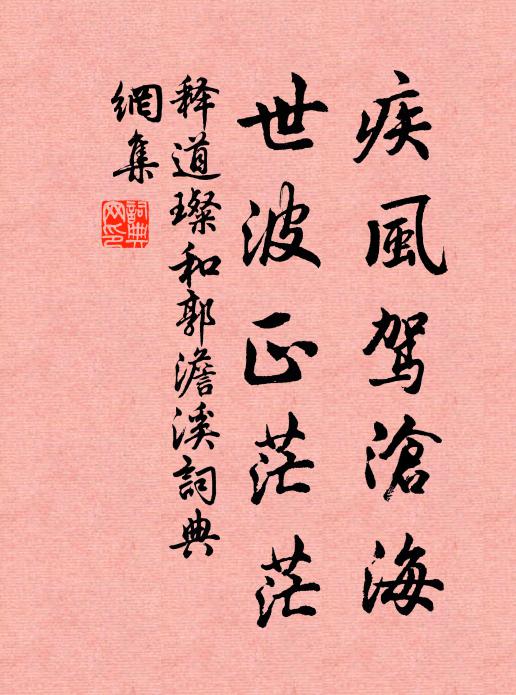 疾風駕滄海
世波正茫茫
释道璨和郭澹溪詞典
網集
詞典
网印